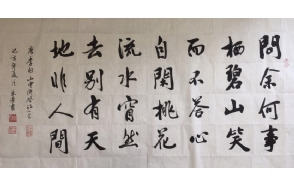 問余何事
栖碧山笑
而不答心
自閑桃花
流水窅然
去別有天
地非人間
唐李白山中